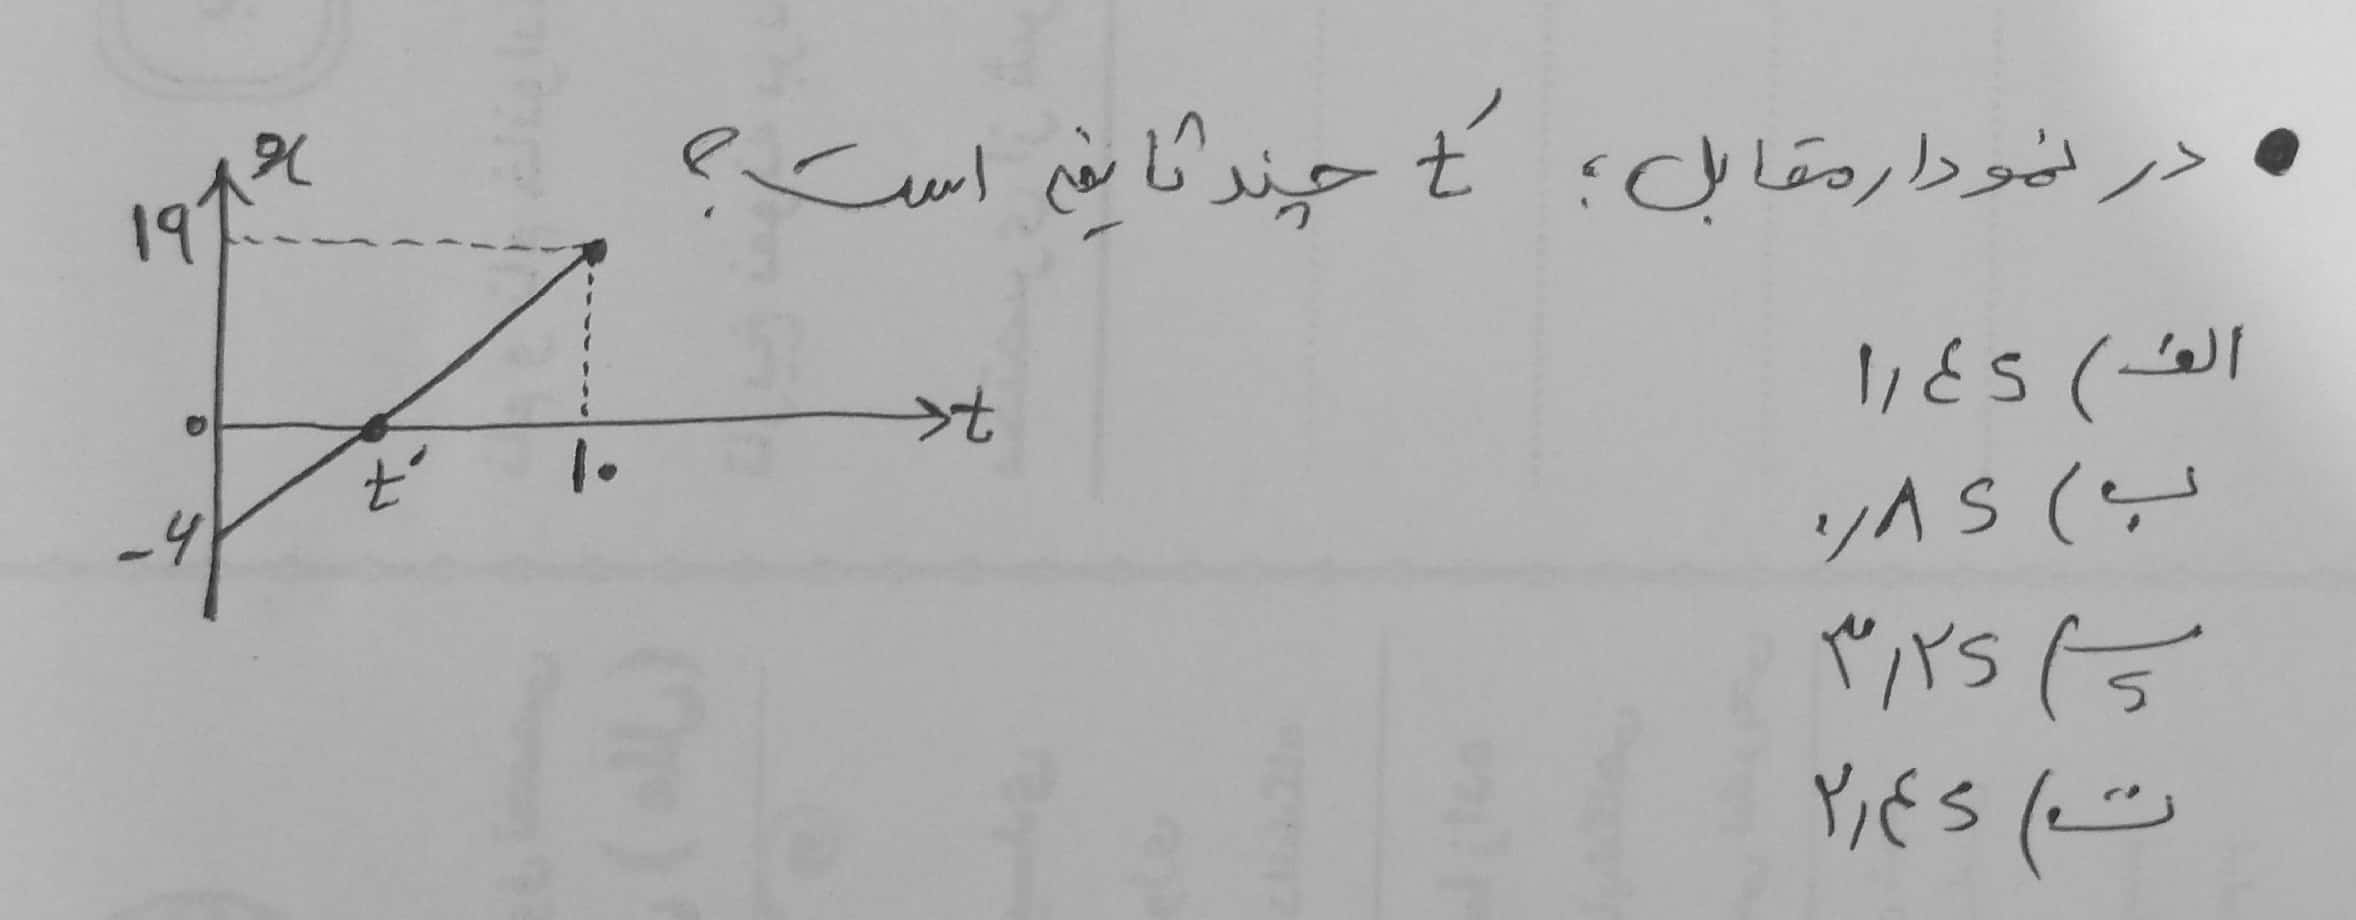 در نمودار مقابل؛ t′ چند ثانیه است؟
الف) ۱٫۴ s
ب) ۰٫۸ s
پ) ۳٫۲ s
ت) ۲٫۴ s
x
۱۹
۰
t′
۱۰
t
-۶